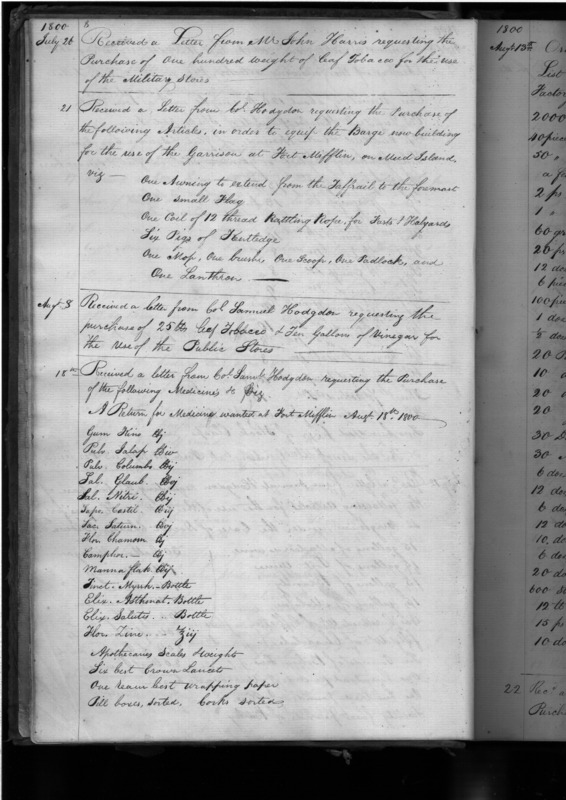 1800
6
July 26 Received a Letter from Mr. John Harris requesting the
Purchase of One hundred weight of Leaf Tobacco for the use
of the Military Stores
21 Received a Letter from Col. Hodgdon requesting the Purchase of
the following Articles, in order to equip the Barge now building
for the use of the Garrison at Fort Mifflin, on Mud Island
viz —
One Awning to extend from the Taffrail to the foremast
One Small Flag
One Coil of 12 thread Rattling Rope, for & Halyards
Six Pigs of Kentledge
One Mop, One brush, One Scoop, One Padlock, and
One Lanthron
Augt 8 Received a letter from Col Samuel Hodgdon requesting the
purchase of 25 lbs Leaf Tobacco & Ten Gallons of Vinegar for
the Use of the Public Stores
18th Received a letter from Col. Saml. Hodgdon requesting the Purchase
of the following Medicines & Viz
A Return for Medicine wanted at Fort Mifflin Augt. 18th. 1800
Gum Kino
Pulv. Jalap
Pulv. Columbo
Sal. Glaub.
Sal. Nitri.
Sapo. Castil.
Sac. Saturn.
Flor. Chamom
Camphor. —
Manna flak
Tinct. Myrrh. - Bottle
Elix. Asthmat. Bottle
Elix. Salutis . . Bottle
Flor. Zinc . . .
Apothecaries Scales & Weights
Six best Crown Lancets
One ream best wrapping paper
Pill boxes, sorted, Corks sorted
1800
Augt 13th
List
Factory
2000
50 "
2 ps
1 "
12 do
1 do
20
10
20
20
6 do
12 do
6 do
12 do
10 do
6 do
20 do
10 do
22 Recd a
Purch